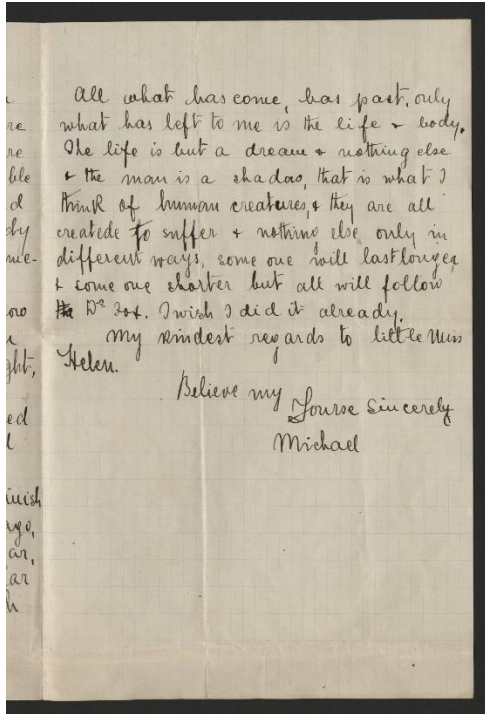 re
re
ble
d
by
me-
ow
ght,
ed
l
inish
ago,
ar,
ar
h
All what has come, has past, only
what has left to me is the life & body.
The life is but a dream & nothing else
& the man is a shadow, that is what I
think of human creatures, & they are all
createde to suffer & nothing else only in
different ways, some one will last longer,
& some one shorter but all will follow
Dr Fox. I wish I did it already.
My kindest regards to little Miss
Helen.
Believe my
Yourse Sincerely
Michael